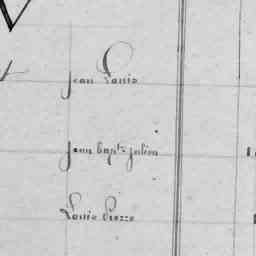 Jean Louis
Jean bapt. julien
Louis Pierre